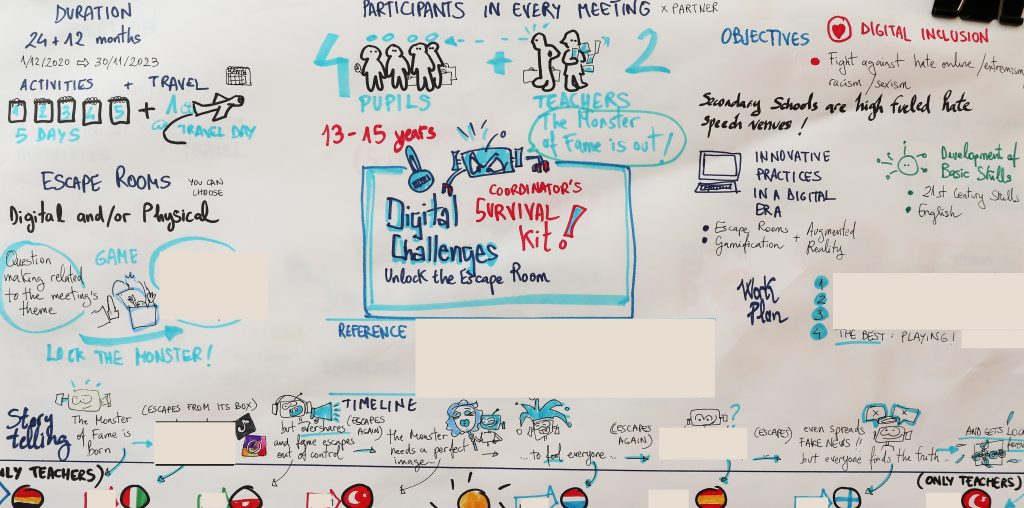 DURATION
24 + 12 months
1/12/2020 ⇨ 30/11/2023
ACTIVITIES + TRAVEL
1 2 3 4 5 + 1
5 DAYS
TRAVEL DAY
ESCAPE ROOMS YOU CAN
CHOOSE
Digital and/or Physical
Question
making related
to the meeting's
theme
GAME
LOCK THE MONSTER!
PARTICIPANTS IN EVERY MEETING x PARTNER
4 + 2
PUPILS
TEACHERS
13-15 years
The Monster
of Fame is out!
Digital
Challenges
COORDINATOR'S
SURVIVAL
Kit!
Unlock the Escape Room
REFERENCE
OBJECTIVES
DIGITAL INCLUSION
• Fight against hate online/extremism
racism/sexism
Secondary Schools are high fueled hate
speech venues!
INNOVATIVE
PRACTICES
IN A DIGITAL
ERA
• Escape Rooms
• Gamification
+ Augmented
Reality
Development of
Basic Skills
• 21st Century Skills
• English
Work
Plan
1
2
3
4 THE BEST: PLAYING!
TIMELINE
Story
telling
The Monster
of Fame is
born
(ESCAPES FROM ITS BOX)
but overshares
and fame escapes
out of control
(ESCAPES
AGAIN)
the Monster
needs a perfect
image...
...to fool everyone...
(ESCAPES
AGAIN)
?
(ESCAPES)
even spreads
FAKE NEWS!!
but everyone finds the truth...
AND GETS
ONLY TEACHERS)
(ONLY TEACHERS)